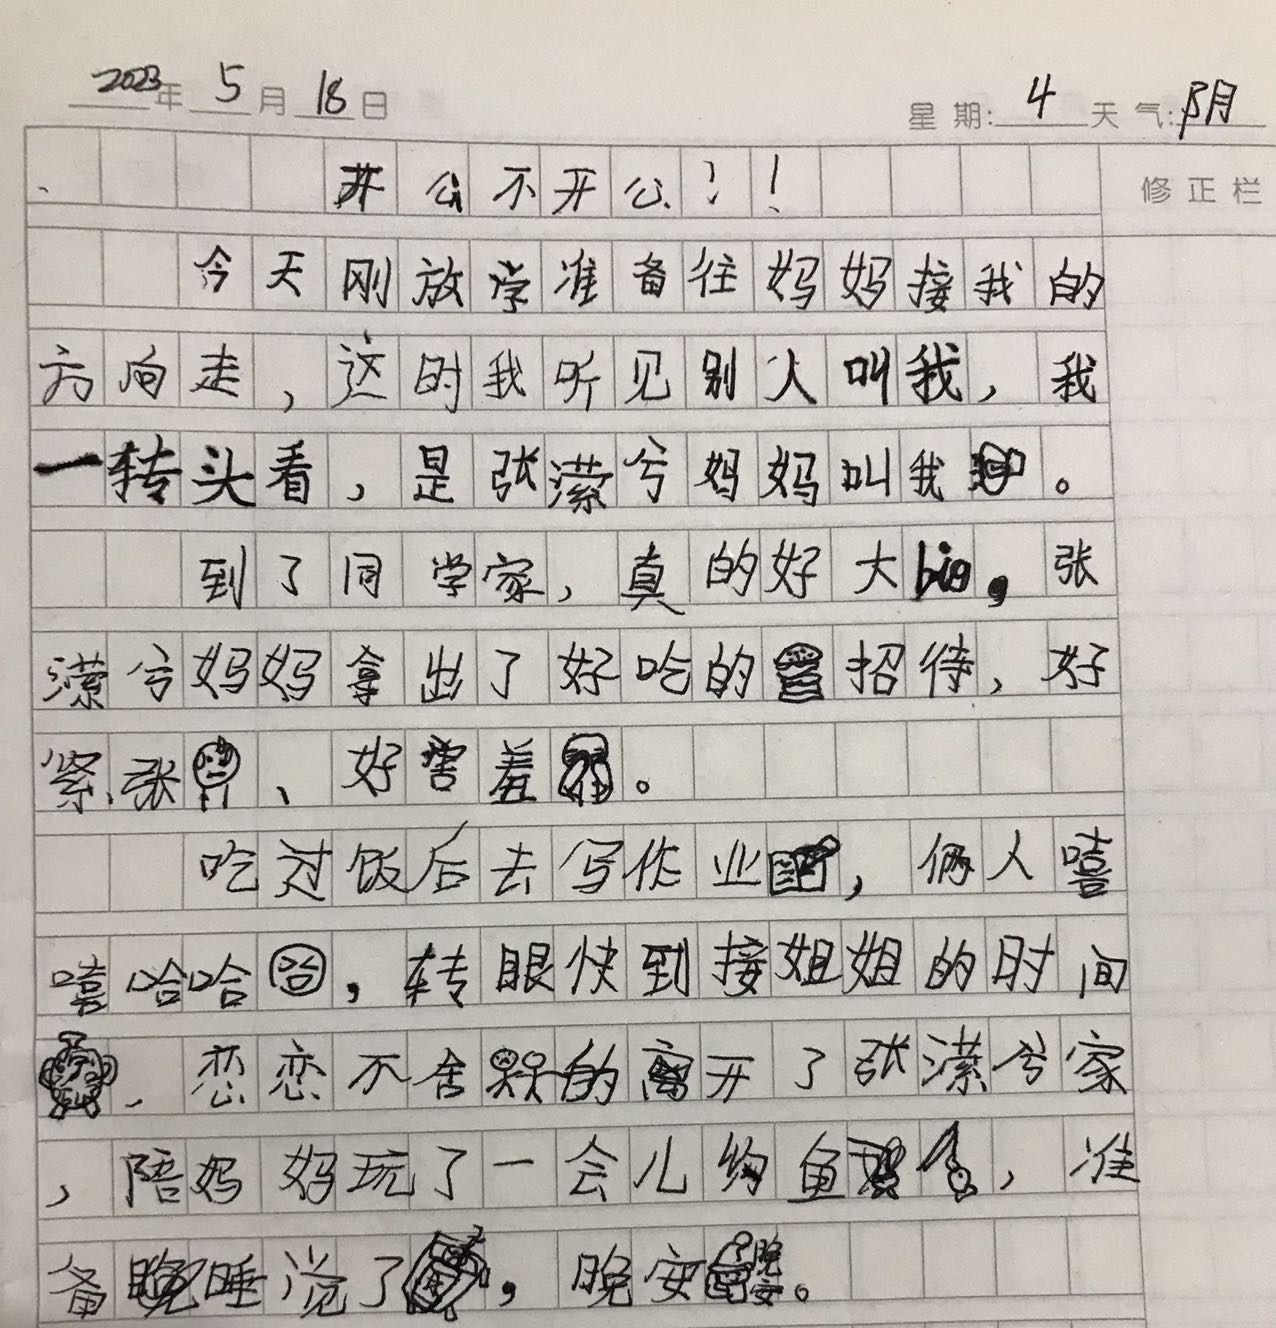 2023年5月18日 星期:4天气:阴
开公不开公?!
修正栏
今天刚放学准备往妈妈接我的
方向走,这时我听见别人叫我,我
一转头看,是张潆兮妈妈叫我。
到了同学家,真的好大big,张
潆兮妈妈拿出了好吃的招待,好
紧张、好害羞。
吃过饭后去写作业,俩人嘻
嘻哈哈,转眼快到接姐姐的时间
,恋恋不舍的离开了张潆兮家
,陪妈妈玩了一会儿钓鱼,准
备睡觉了,晚安晚安。